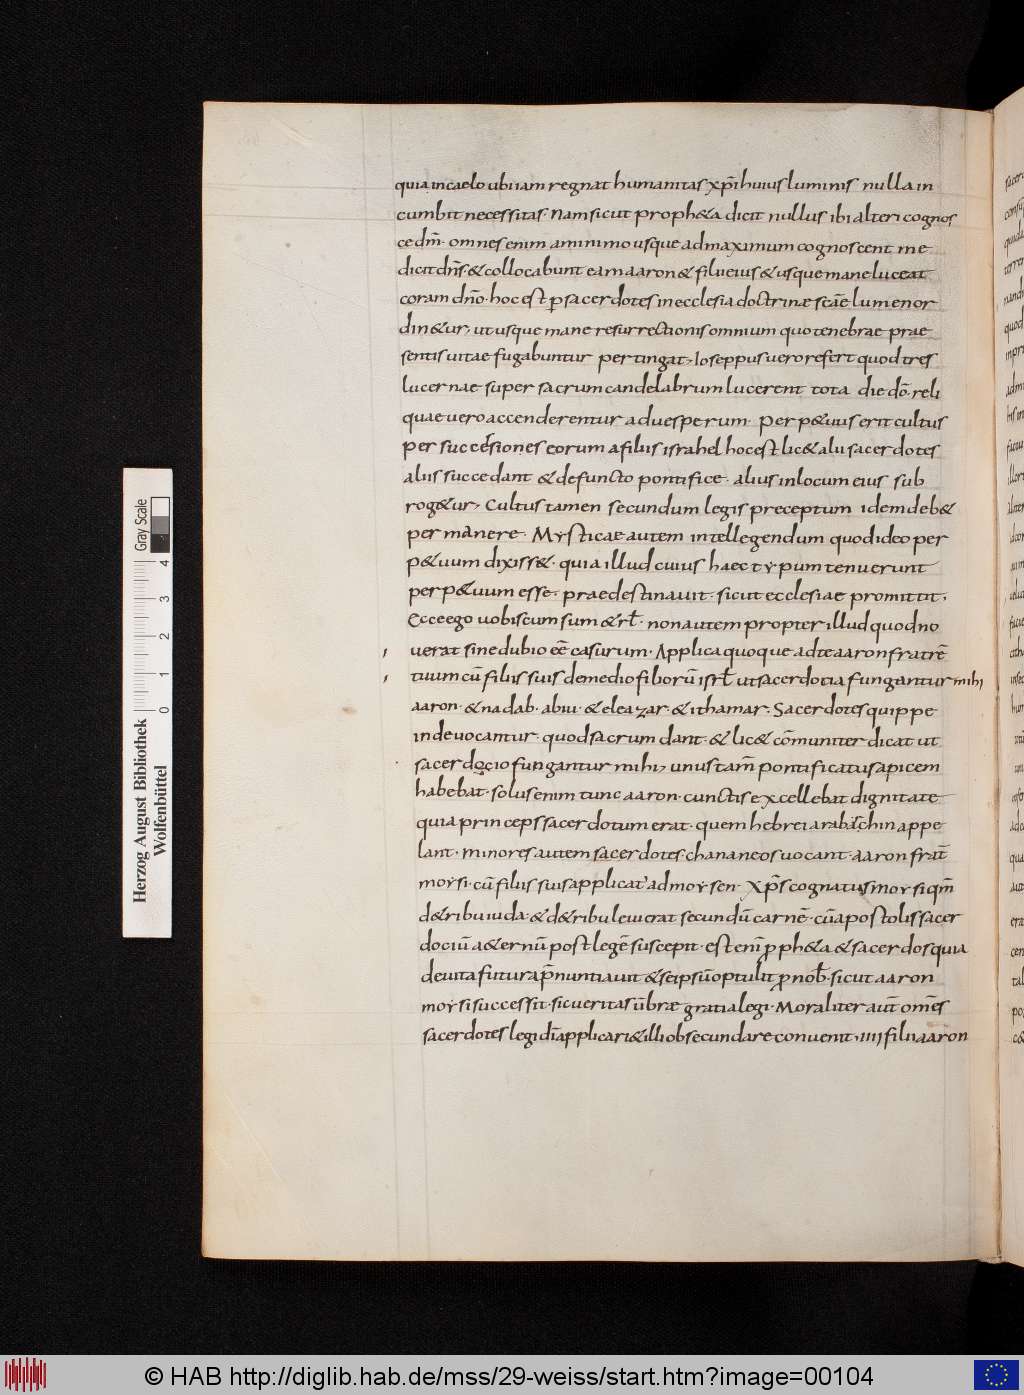 quia incaelo ubi iam regnat humanitas xp̄i huius luminis nulla in
cumbit necessitas. Nam sicut proph&a dicit nullus ibi alteri cognos
ce dm̄. omnes enim aminimo usque admaximum cognoscent me
dicit dn̄s. & collocabunt eam aaron & filii eius & usque mane luceat
coram dn̄o. hoc est p sacerdotes inecclesia doctrinae scāe lumen or
din&ur, ut usque mane resurrectionis omnium quo tenebrae prae
sentis uitae fugabuntur pertingat. Ioseppus uero refert quod tres
lucernae super sacrum candelabrum lucerent tota die dō. reli
quae uero accenderentur aduesperum. Perp&uus erit cultus
per successiones eorum afiliis israhel hoc est lic& alii sacerdotes
aliis succedant & defuncto pontifice. alius inlocum eius sub
rog&ur, Cultus tamen secundum legis preceptum idem deb&
permanere. Mysticae autem intellegendum quod ideo per
p&uum dixiss&. quia illud cuius haec typum tenuerunt
perp&uum esse, praedestinauit. sicut ecclesiae promittit.
Ecce ego uobiscum sum & rł. non autem propter illud quod no
uerat sine dubio eē casurum. Applica quoque adte aaron fratrē
tuum cū filiis suis demedio filiorū isrł ut sacerdotio fungantur mihi
aaron. & nadab. abiu. & eleazar. & ithamar. Sacerdotes quippe
inde uocantur. quod sacrum dant. & lic& cōmuniter dicat ut
sacerdocio fungantur mihi, unus tam̄ pontificatus apicem
habebat. solus enim tunc aaron. cunctis excellebat dignitate
quia princeps sacerdotum erat. quem hebrei arabarchin appe
lant. minores autem sacerdotes. chananeos uocant. aaron frat̄
moysi. cū filiis suis applicat' admoysen. Xp̄s cognatus moysi qm̄
d&ribu iuda. & d&ribu leui erat secundū carnē. cū apostolis sacer
dociū a&ernū post legē suscepit. est enī p ph&a & sacerdos quia
deuita futura p̄nuntiauit & seipsū optulit p nob̄. sicut aaron
moysi successit. sic ueritas ūbrae gratia legi. Moraliter aut̄ om̄es
sacerdotes legi dī applicari & illi obsecundare conuenit. iiii filii aaron
Herzog August Bibliothek
Wolfenbüttel
0 1 2 3 4
Gray Scale
© HAB http://diglib.hab.de/mss/29-weiss/start.htm?image=00104